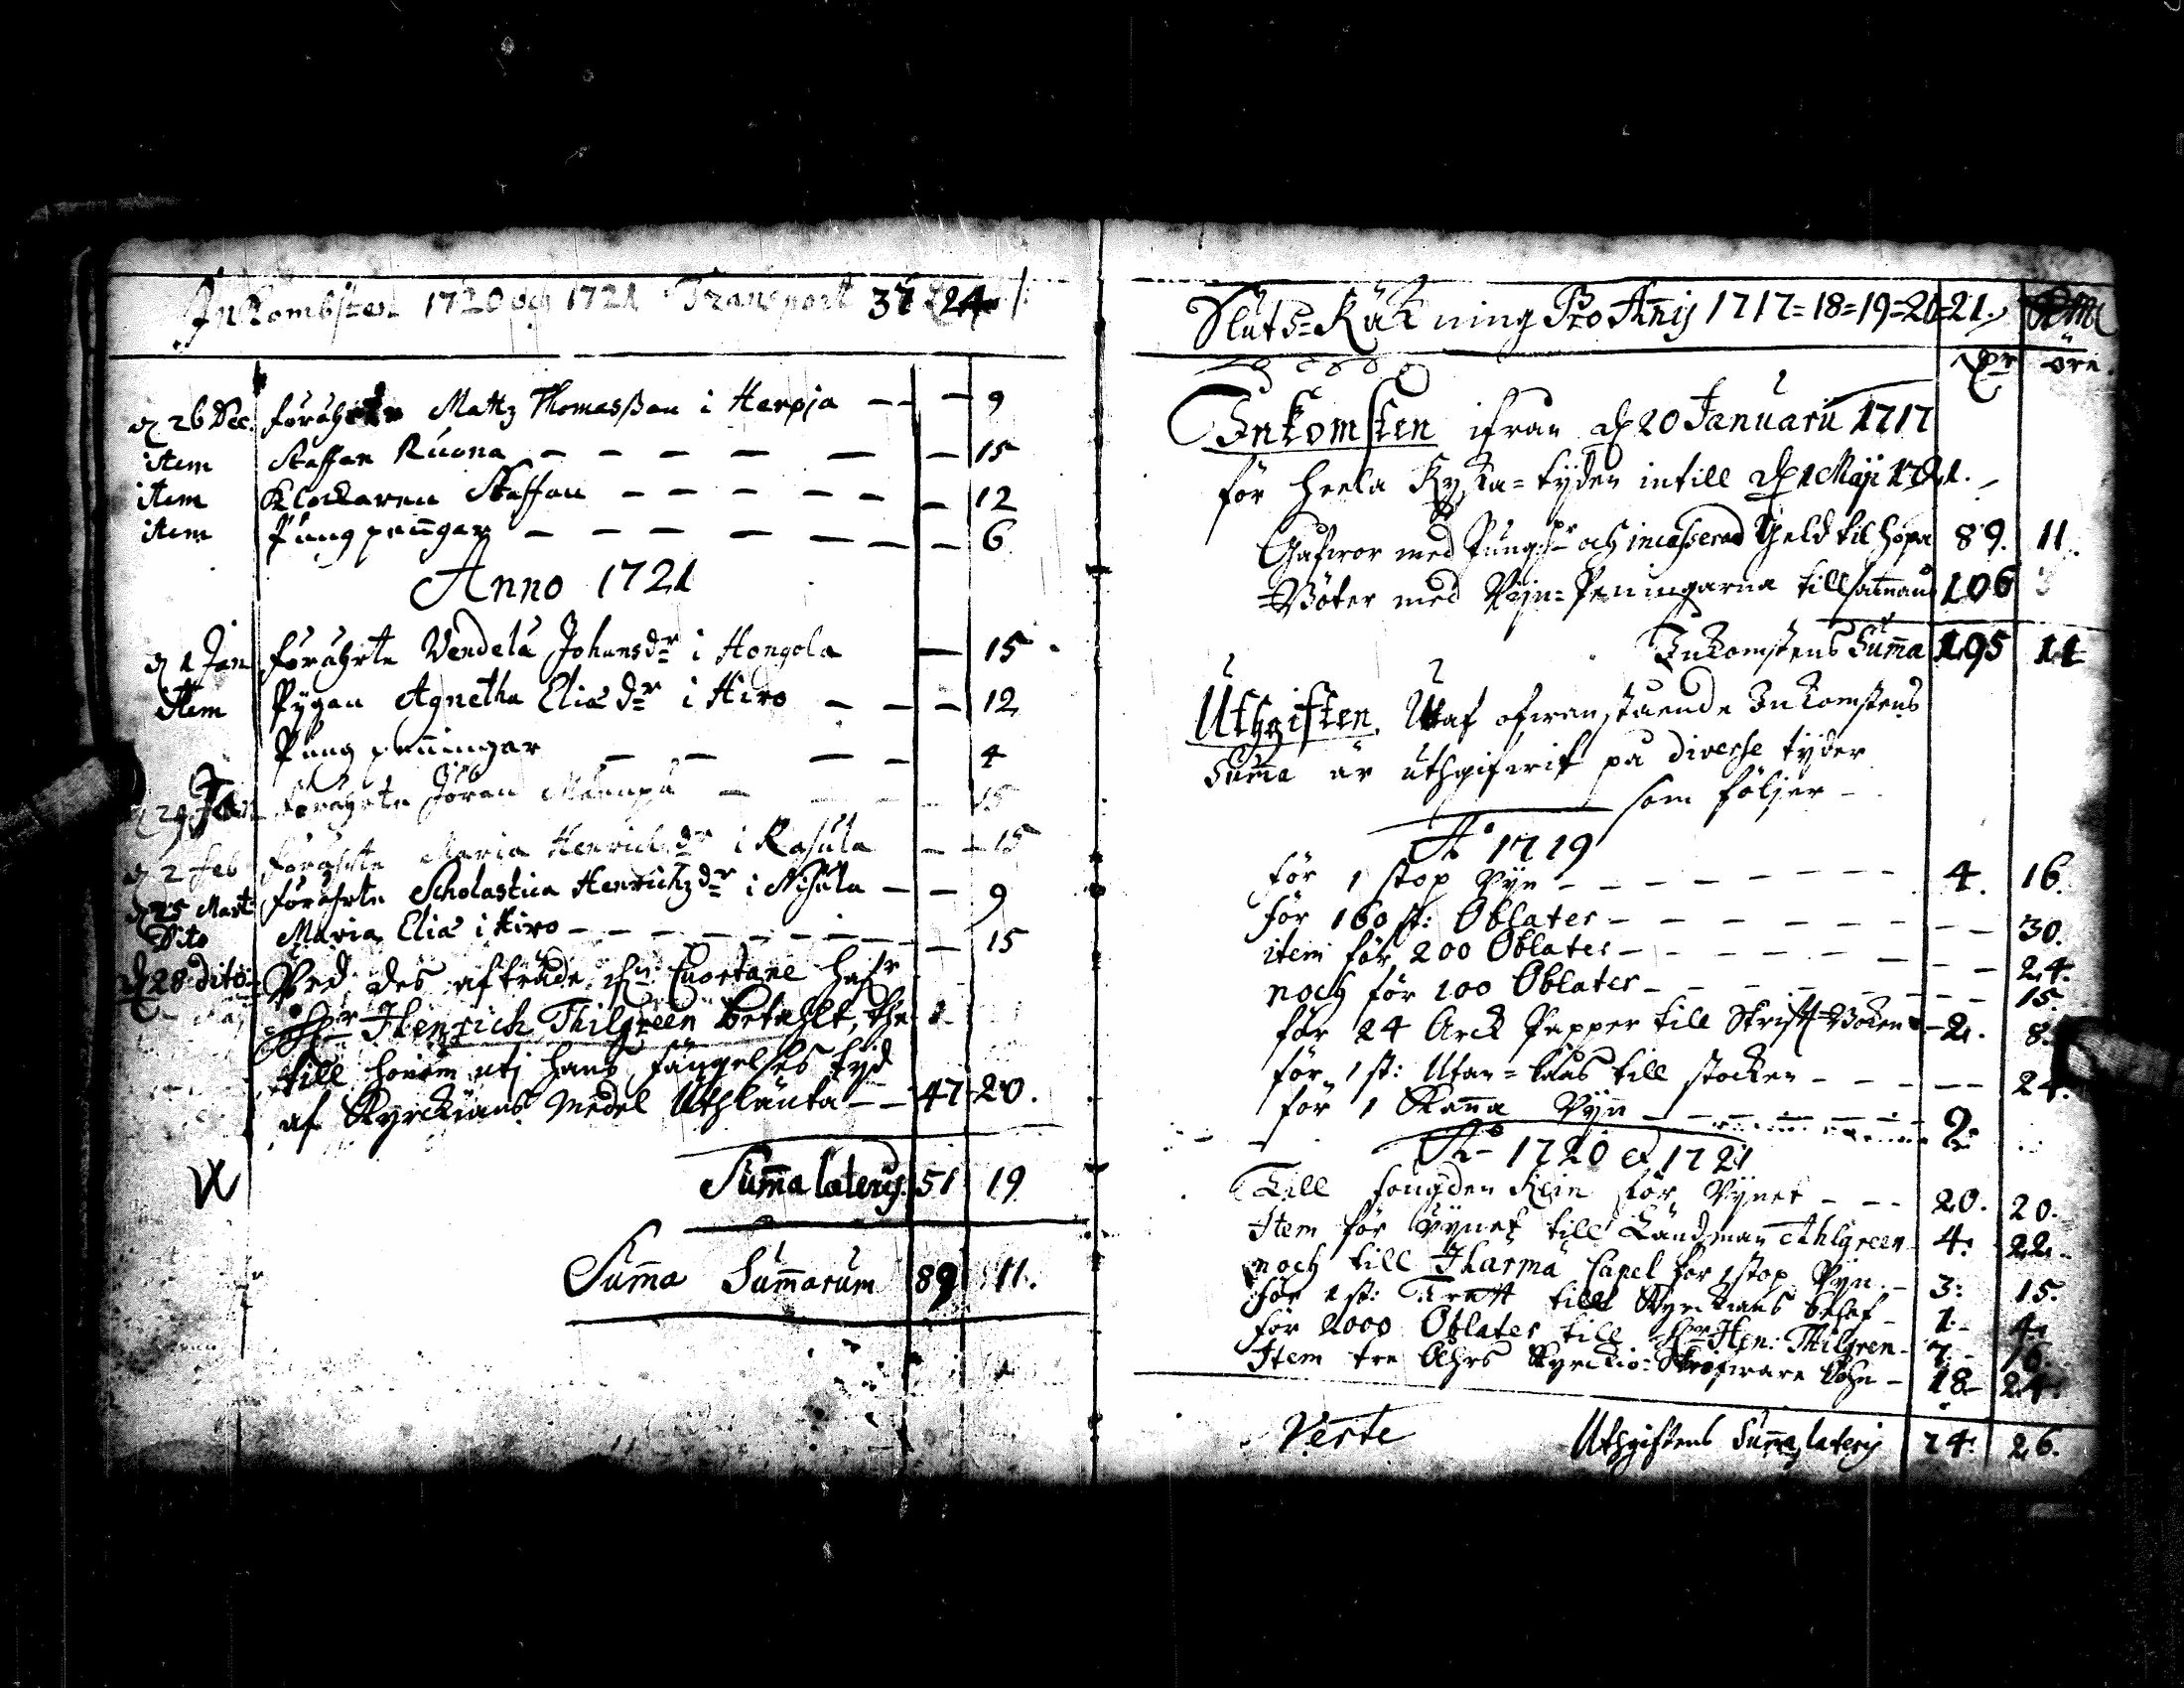 Inkombsten 1720 och 1721 Transport 37 24
d 26 Dec. förährte Mattz Thomasßon i Harpja — — — 9
item Staffan Ruona — — — — — — 15
item Klockaren Staffan — — — — — — 12
item Pungpenngar — — — — — — 6
Anno 1721
d 1 Jan förährte Vendela Johansdr i Hongola — 15
Item Pygan Agnetha Eliædr i Hiro — — — 12
Pung penningar — — — — 4
d 29 förährte Jöran — — — 15
d 2 Feb förährte Maria Henrichsdr i Rasula — — 15
d 25 Mart. förährte Scholastica Henrichzdr i Nisula — — 9
Dito Maria Eliæ i Hiro — — — — — — — 15
d 28 dito Ved des afträde ifrn Cuortane hafr
Hr Henrich Thilgreen betahlt, the
till honom uti hans fängelses tyd
af Kyrckians Medel Uthlänta — — 47 20.
Summa lateris. 51 19
Summa Summarum 89 11.
Sluts=Räkning Pro Annis 1717=18=19=20=21. SM
Dr öre.
Inkomsten ifran d 20 Januarii 1717
för heela tyden intill d 1 Maji 1721.
Gåfwor med Pungpr och incasserad Geld til hopa 89. 11.
Böter med Vijn=Peningarna tillsamans 106
Inkomstens Summa 195 11
Uthgiften. Utaf ofwanstaende Inkomstens
Summa är uthgifwit pa diverse tyder
som följer —
Ao 1719
för 1 stop Vyn — — — — — — — — 4. 16.
för 160 st: Oblater — — — — — — — 30.
item för 200 Oblater — — — — — — — 24.
noch för 100 Oblater — — — — — — — 15
för 24 Arck Papper till Skrifft=Boken — 2. 8.
för 1 st: Utan=laas till stocken — — — — 24.
för 1 Kanna Vyn — — — — — 2.
Ao 1720 et 1721
Till fougden Klin för Vynet — — — 20. 20.
Item för Vynet till Ländzman Ahlgreen 4: 22.
noch till Härmä Capel för 1 stop Vyn. — 3: 15.
för 1 st: till Kyrckians behof — 1. 4.
för 2000 Oblater till Hr Hen: Thilgren — 7. 16.
Item tre Åhrs Kyrckio=Skrifware Löhn — 18. 24.
Verte Uthgiftens Summa lateris 74: 26.